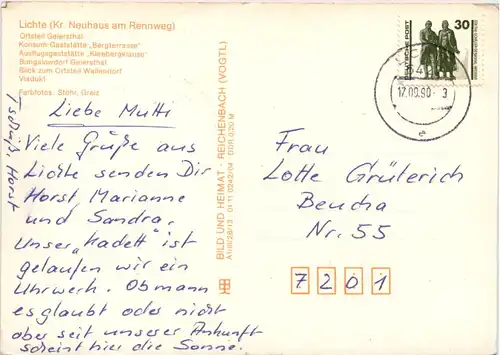 Lichte (Kr. Neuhaus am Rennweg)
Ortsteil Geiersthal
Konsum-Gaststätte „Bergterrasse“
Ausflugsgaststätte „Kieferbergklause“
Bungalowdorf Geiersthal
Blick zum Ortsteil Wallendorf
Viadukt
Farbfotos: Stöhr, Greiz
Liebe Mutti
Viele Grüße aus
Lichte senden Dir
Horst, Marianne
und Sandra.
Unser „Kadett“ ist
gelaufen wie ein
Uhrwerk. Ob man
es glaubt oder nicht
aber seit unserer Ankunft
scheint hier die Sonne.
Tschüß, Horst
BILD UND HEIMAT · REICHENBACH (VOGTL)
01 11 0242/04 DDR 0,20 M
DEUTSCHE POST
30
17.09.90 - 3
e
Frau
Lotte Grüterich
Beucha
Nr. 55
7201